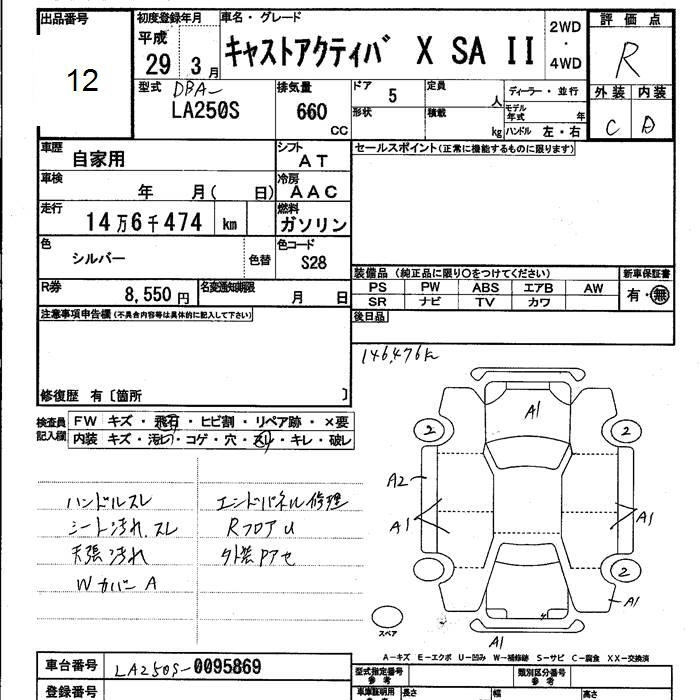 出品番号
12
初度登録年月
平成
29 3月
車名・グレード
キャストアクティバ X SA II
2WD
・
4WD
評価点
R
外装 内装
C D
型式 DBA-
LA250S
排気量
660
CC
ドア
5
定員
人
形状
積載
kg
ディーラー・並行
モデル年式
年
ハンドル 左・右
車歴
自家用
シフト
AT
セールスポイント(正常に機能するものに限ります)
車検
年 月( 日)
冷房
AAC
走行
14万6千474 km
燃料
ガソリン
色
シルバー
色替
色コード
S28
R券
8,550円
名変通知期限
月 日
装備品(純正品に限り○をつけてください)
新車保証書
PS PW ABS エアB AW
有・無
SR ナビ TV カワ
後日品
注意事項申告欄(不具合内容等は具体的に記入して下さい)
修復歴 有〔箇所 〕
146,476K
検査員
記入欄
FW キズ・飛石・ヒビ割・リペア跡・×要
内装 キズ・汚レ・コゲ・穴・スレ・キレ・破レ
ハンドルスレ
シート汚れ.スレ
天張汚れ
Wカバー A
エンドパネル修理
RフロアU
外装Pアセ
A1
2
2
A2
A1
A1
2
A1
A1
スペア
A-キズ E-エクボ U-凹み W-補修跡 S-サビ C-腐食 XX-交換済
車台番号
LA250S-0095869
登録番号
型式指定番号
参考
類別区分番号
参考
車庫証明用
参考
長さ
幅
高さ